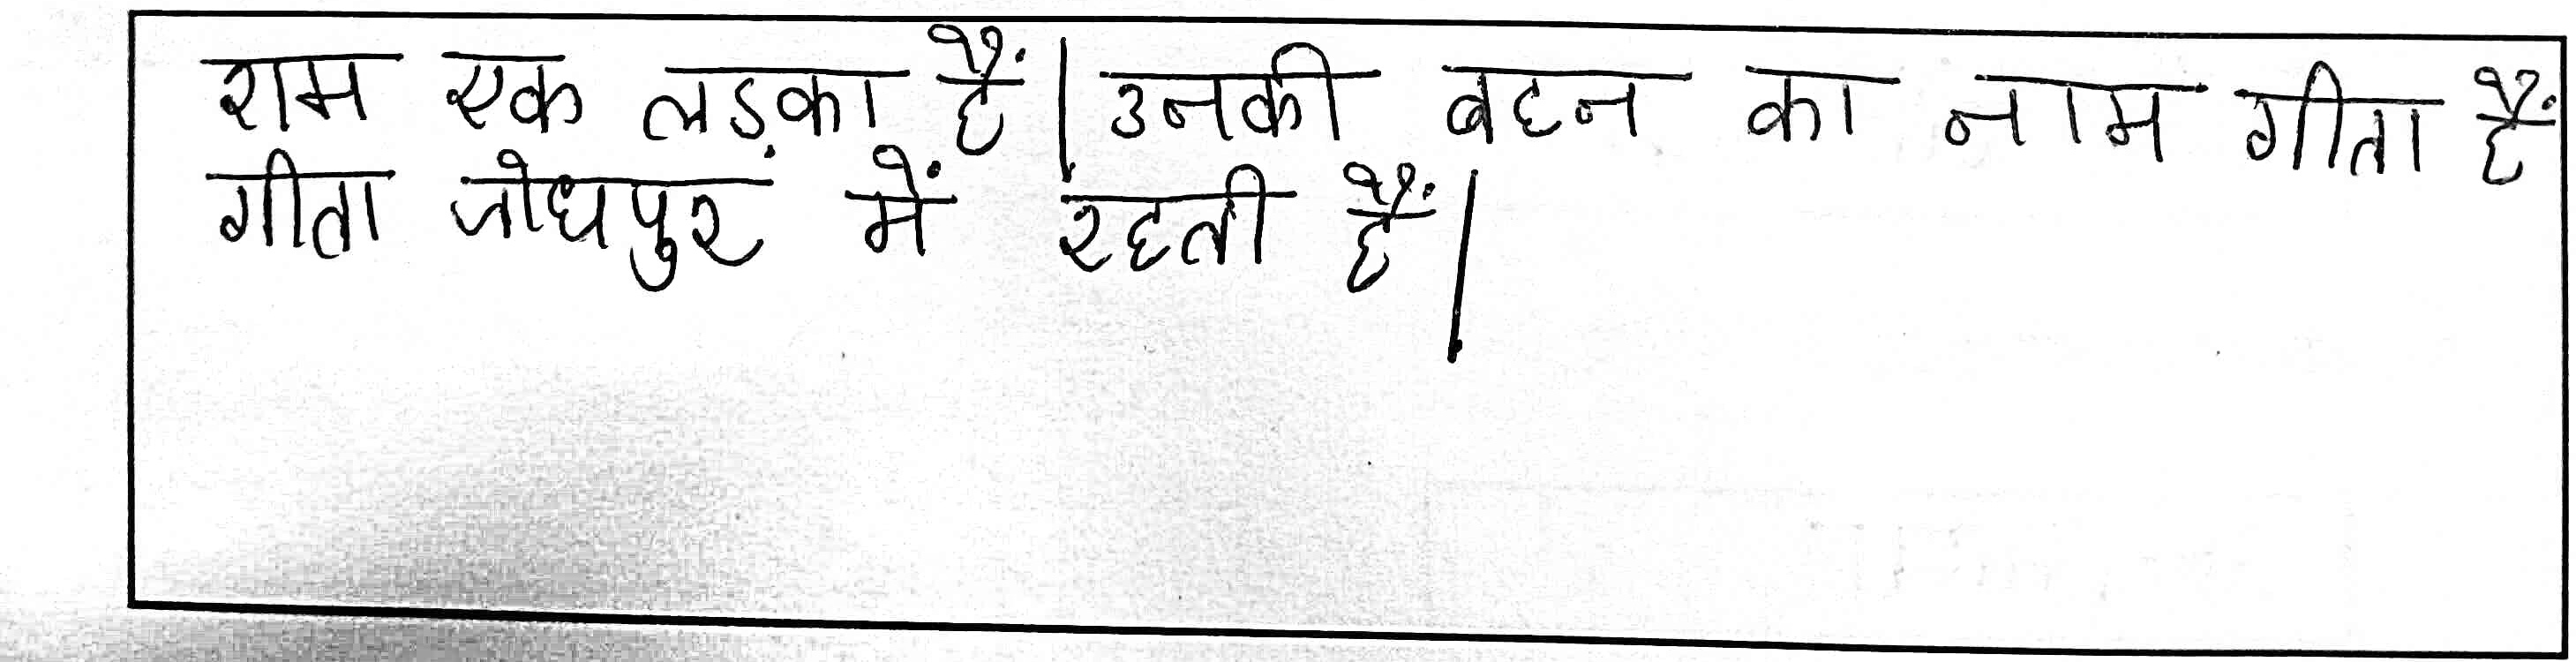 राम एक लड़का हैं। उनकी बहन का नाम गीता हैं
गीता जोधपुर में रहती हैं।